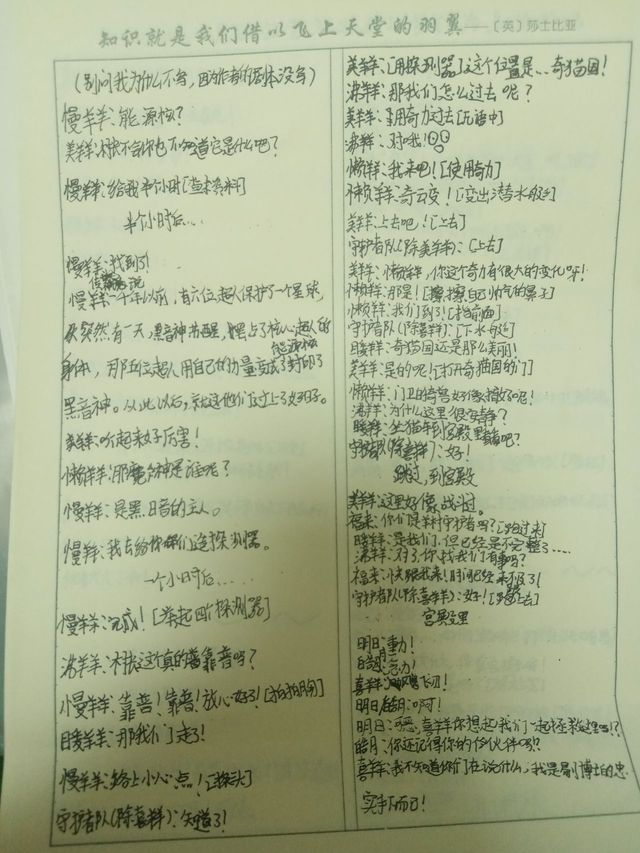 知识就是我们借以飞上天堂的羽翼——〔英〕莎士比亚
(别问我为什么不写,因为作者的剧本没写)
慢羊羊:能源恢?
美羊羊:村长不会你也不知道它是什么吧?
慢羊羊:给我半个小时[查本资料]
半个小时后....
慢羊羊:找到了!
慢羊羊:千年以前,有六位超人保护了一个星球,
突然有一天,黑音神苏醒,占了核心超人的
身体,那五位超人用自己的力量变成了封印了
黑音神。从此以后,就这他们过上了好日子。
美羊羊:听起来好厉害!
懒羊羊:那魔音神是谁呢?
慢羊羊:是黑日音的主人。
慢羊羊:我去给你们造探测器。
一个小时后......
慢羊羊:完成![举起四探测器]
沸羊羊:村长这个真的靠普吗?
小慢羊羊:靠普!靠普!放心好了![拍拍胸]
暖羊羊:那我们走了!
慢羊羊:路上小心点![探头]
守护者队(除喜羊羊):知道了!
美羊羊:[用探测器]这个位置是...奇猫国!
沸羊羊:那我们怎么过去呢?
美羊羊:用奇力过去[无语中]
沸羊羊:对哦!
懒羊羊:我来吧![使用奇力]
懒羊羊:奇云变![变出潜水艇]
美羊羊:上去吧![上去]
守护者队(除美羊羊):[上去]
美羊羊:懒羊羊,你这个奇力有很大的变化呀!
懒羊羊:那是![擦擦自己帅气的鼻子]
懒羊羊:我们到了![指前面]
守护者队(除喜羊羊):[下水艇]
暖羊羊:奇猫国还是那么美丽!
美羊羊:是的呢![打开奇猫国的门]
懒羊羊:门卫的奇兽好像撤了呢!
沸羊羊:为什么这里很安静?
守护者队(除喜羊羊):好!
跳过,到宫殿
美羊羊:这里好像战斗过。
福来:你们是羊村守护者吗?[跑过来]
暖羊羊:是我们,但已经是不完整了....
沸羊羊:对了,你找我们有事吗?
福来:快跟我来!时间已经来不及了!
守护者队(除喜羊羊):好![跟上去]
宫殿里
明日:重力!
喜羊羊:飓风飞刃!
明日皓月:啊!
皓月:你还记得你的伙伴吗!?
喜羊羊:我不知道你们在说什么,我是剔博士的忠
实手下而已!